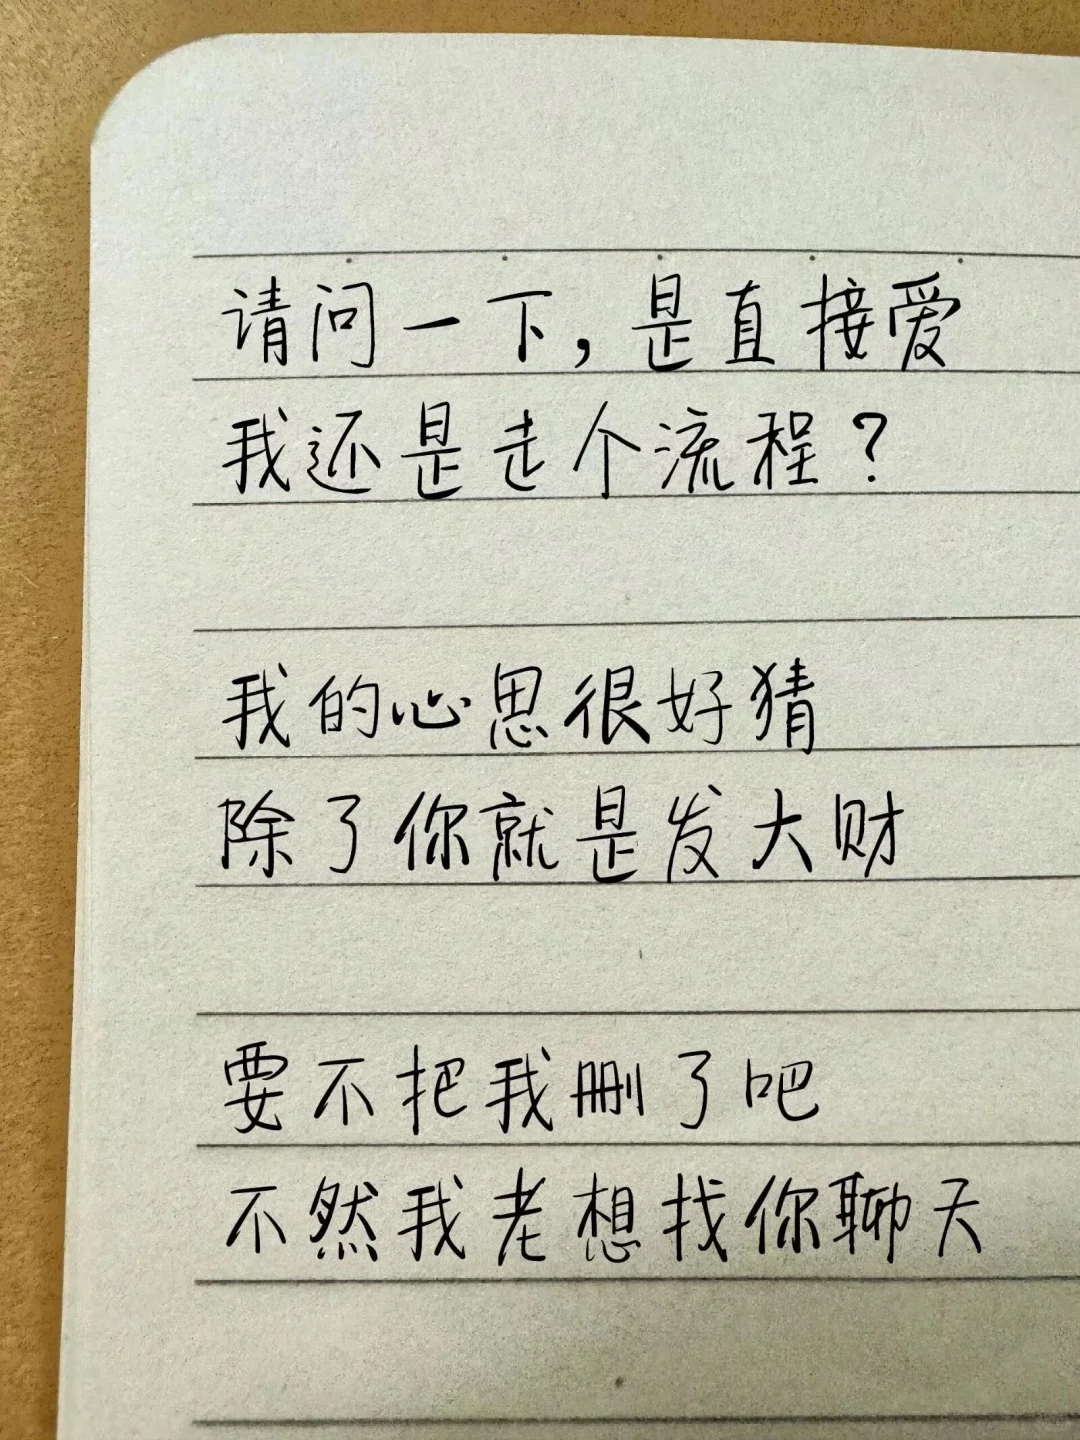 请问一下，是直接爱
我还是走个流程？
我的心思很好猜
除了你就是发大财
要不把我删了吧
不然我老想找你聊天